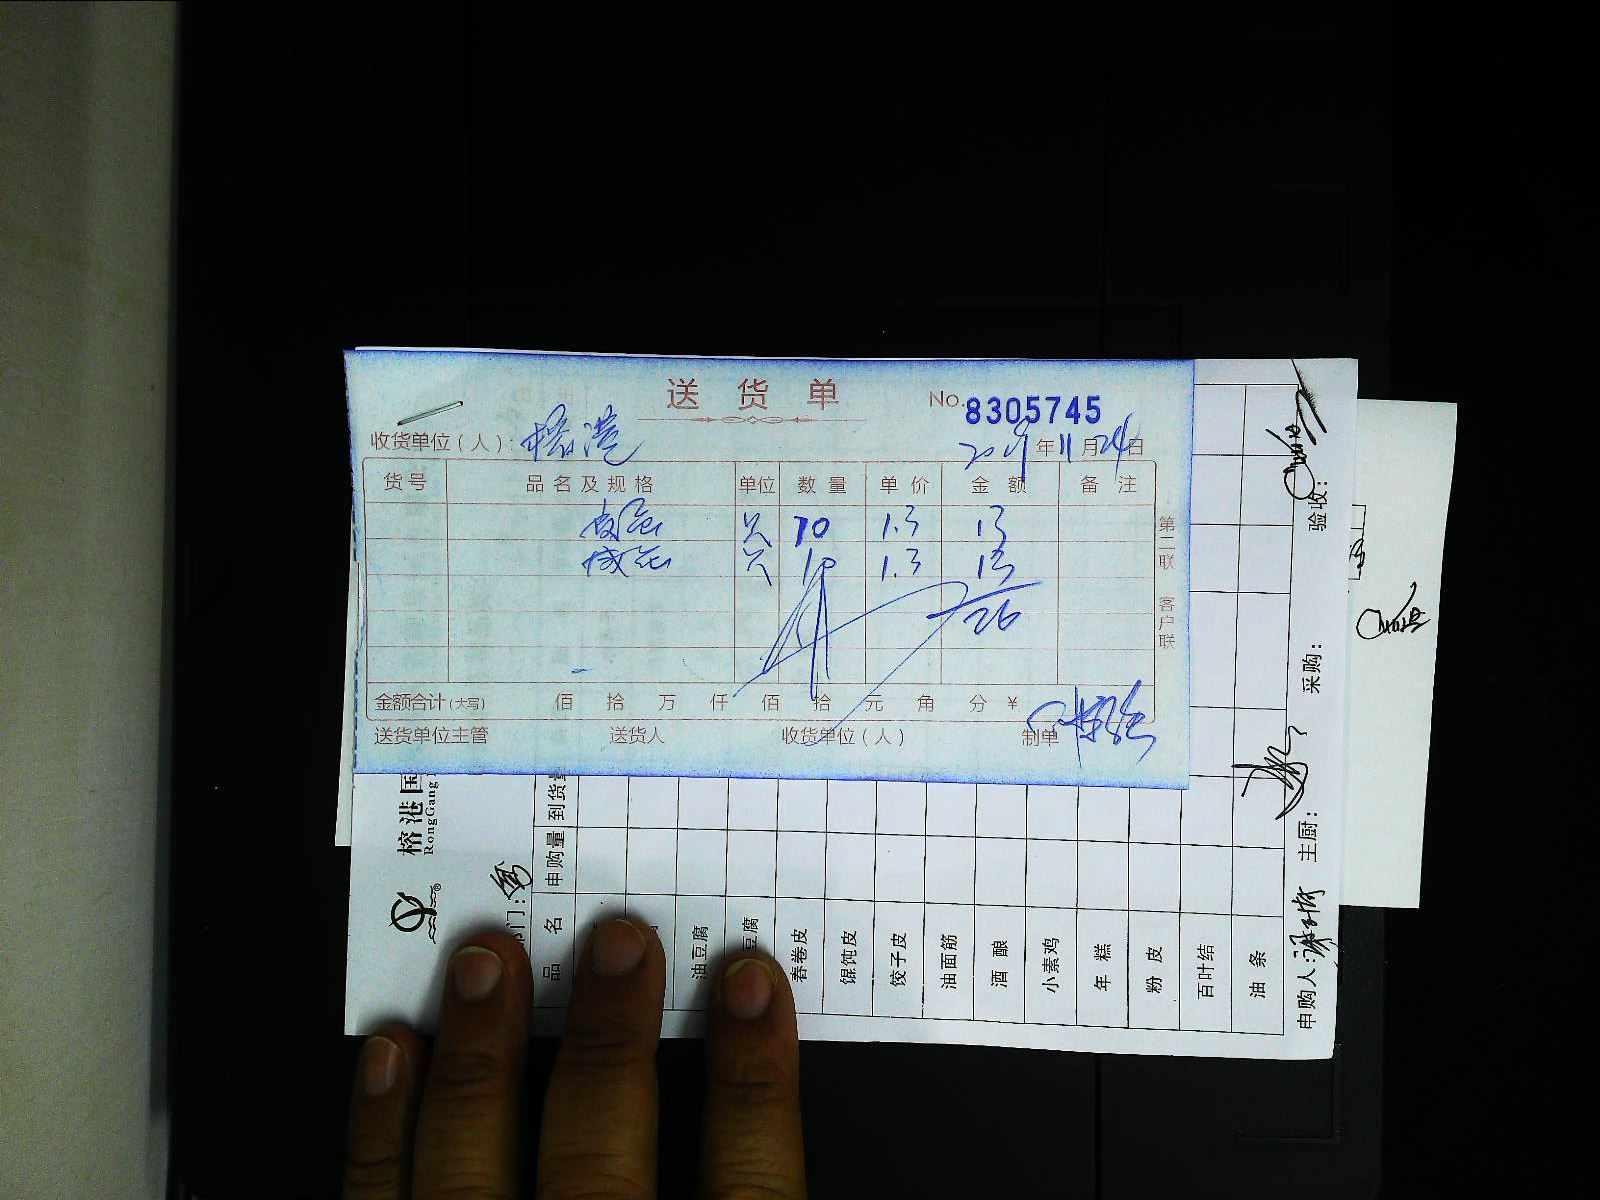 送货单
No. 8305745
收货单位(人): 榕港
2019年11月24日
货号 品名及规格 单位 数量 单价 金额 备注
皮蛋 只 10 1.3 13
咸蛋 只 10 1.3 13
26
第二联 客户联
金额合计(大写) 佰 拾 万 仟 佰 拾 元 角 分 ¥
送货单位主管 送货人 收货单位(人) 制单
榕港国
RongGang
部门:
品名 申购量 到货量
油豆腐
豆腐
春卷皮
馄饨皮
饺子皮
油面筋
酒酿
小素鸡
年糕
粉皮
百叶结
油条
申购人: 主厨: 采购: 验收: